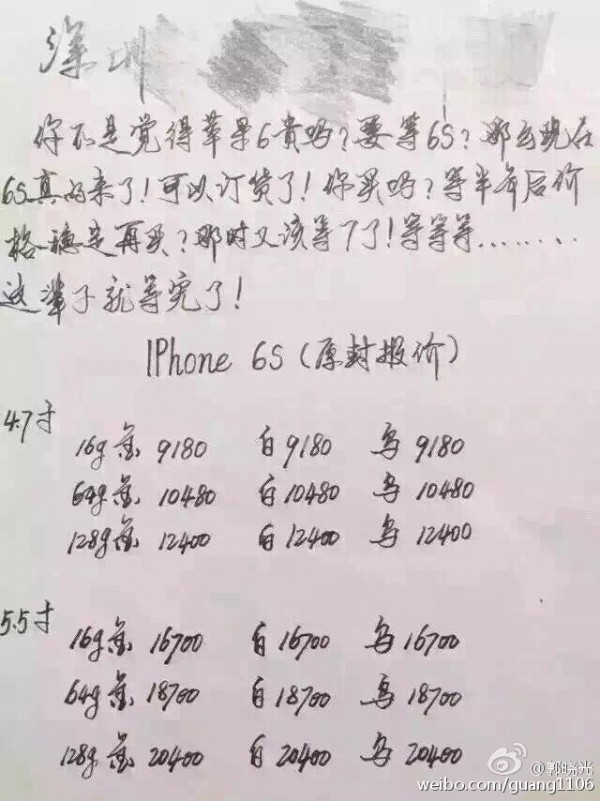 深圳
你不是觉得苹果6贵吗?要等6S?那么现在
6S真的来了!可以订货了!你买吗?等半年后价
格稳定再买?那时又该等7了!等等等........
这辈子就等完了!
IPhone 6S (原封报价)
4.7寸
16g金 9180 白 9180 乌 9180
64g金 10480 白 10480 乌 10480
128g金 12400 白 12400 乌 12400
5.5寸
16g金 16700 白 16700 乌 16700
64g金 18700 白 18700 乌 18700
128g金 20400 白 20400 乌 20400
@郭晓光
weibo.com/guang1106